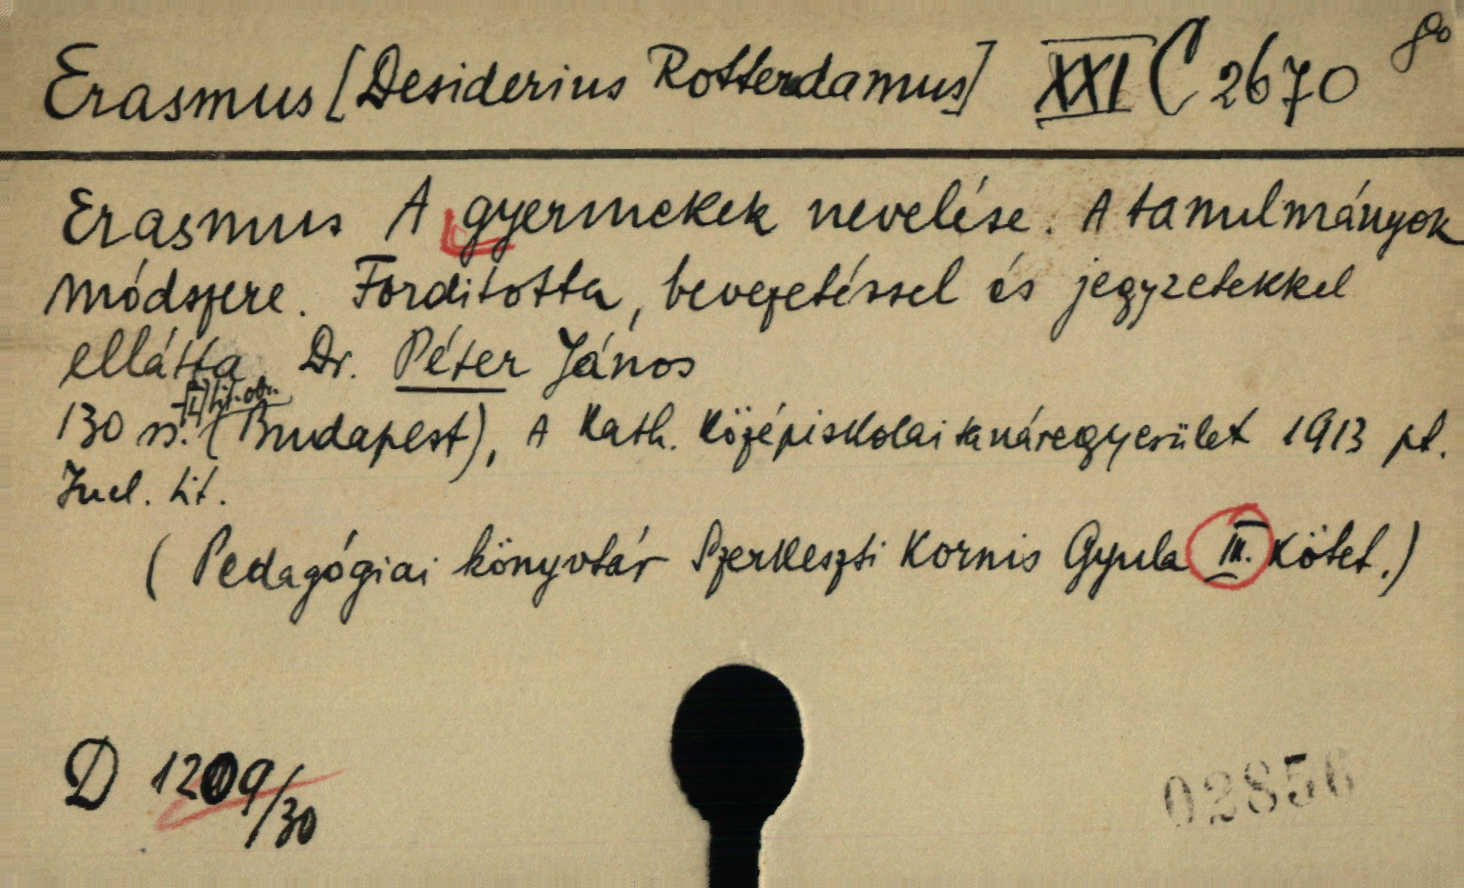 Erasmus [Desiderius Rotterdamus] XXI C 2670 8o
Erasmus A gyermekek nevelése. A tanulmányok
módszere. Forditotta, bevezetéssel és jegyzetekkel
ellátta Dr. Péter János
130 (Budapest), A Kath. Középiskolai tanáregyesület 1913 pt.
Incl. tit.
(Pedagógiai könyvtár Szerkeszti Kornis Gyula III. kötet.)
D 1209/30
02856